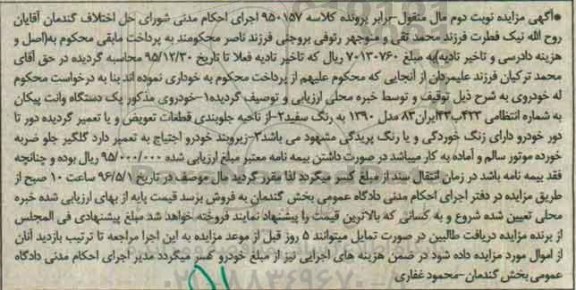 ●آگهی مزایده نوبت دوم مال منقول-برابر پرونده کلاسه ۹۵۰۱۵۷ اجرای احکام مدنی شورای حل اختلاف گندمان آقایان
روح الله نیک فطرت فرزند محمد تقی و منوچهر رئوفی بروجنی فرزند ناصر محکومند به پرداخت مابقی محکوم به(اصل و
هزینه دادرسی و تاخیر تادیه)به مبلغ ۷۰۱۳۰۷۶۰ ریال که تاخیر تادیه فعلا تا تاریخ ۹۵/۱۲/۳۰ محاسبه گردیده در حق آقای
محمد ترکیان فرزند علیمردان از آنجایی که محکوم علیهم از پرداخت محکوم به خودداری نموده اند بنا به درخواست محکوم
له خودروی به شرح ذیل توقیف و توسط خبره محلی ارزیابی و توصیف گردیده۱-خودروی مذکور یک دستگاه وانت پیکان
به شماره انتظامی ۴۲۳ب۲۳ایران۸۳ مدل ۱۳۹۰ به رنگ سفید۲-از ناحیه جلوبندی قطعات تعویض و یا تعمیر گردیده دور تا
دور خودرو دارای زنگ خوردگی و یا رنگ پریدگی مشهود می باشد۳-زیروبند خودرو احتیاج به تعمیر دارد گلگیر جلو ضربه
خورده موتور سالم و آماده به کار میباشد در صورت داشتن بیمه نامه معتبر مبلغ ارزیابی شده ۹۵/۰۰۰/۰۰۰ ریال بوده و چنانچه
فقد بیمه نامه باشد در زمان انتقال سند از مبلغ کسر میگردد لذا مقرر گردید مال موصف در تاریخ ۹۶/۵/۱ ساعت ۱۰ صبح از
طریق مزایده در دفتر اجرای احکام مدنی دادگاه عمومی بخش گندمان به فروش برسد قیمت پایه از بهای ارزیابی شده خبره
محلی تعیین شده شروع و به کسانی که بالاترین قیمت را پیشنهاد نمایند فروخته خواهد شد مبلغ پیشنهادی فی المجلس
از برنده مزایده دریافت طالبین در صورت تمایل میتوانند ۵ روز قبل از موعد مزایده به این اجرا مراجعه تا ترتیب بازدید آنان
از اموال مورد مزایده داده شود در ضمن هزینه های اجرایی نیز از مبلغ خودرو کسر میگردد مدیر اجرای احکام مدنی دادگاه
عمومی بخش گندمان-محمود غفاری